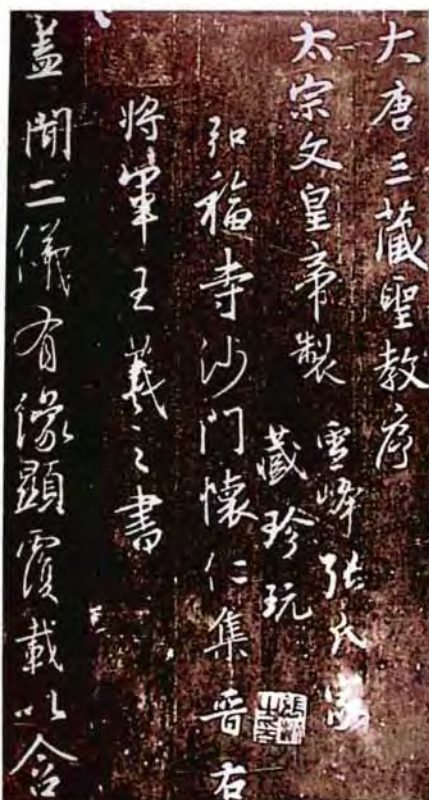 大唐三藏聖教序
太宗文皇帝製
雪峰張氏家
藏珍玩
弘福寺沙門懷仁集晉右
將軍王羲之書
蓋聞二儀有像顯覆載以含